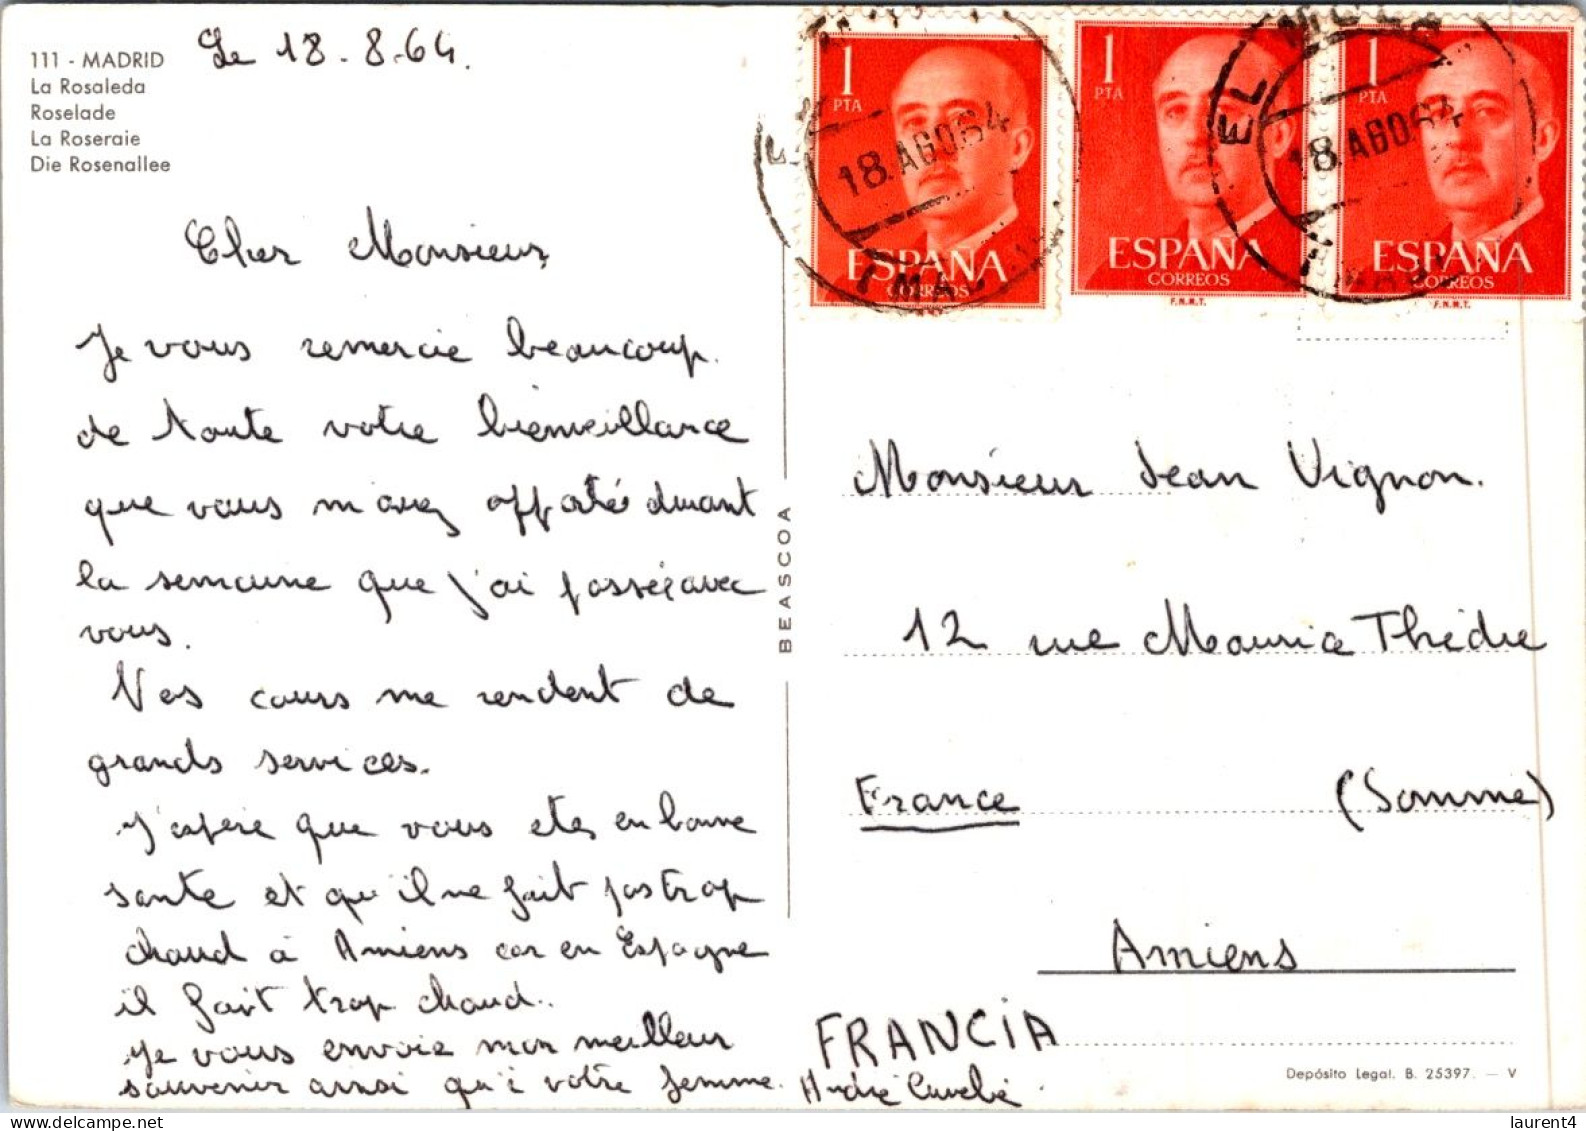 111 - MADRID
La Rosaleda
Roselade
La Roseraie
Die Rosenallee
Le 18-8-64.
Cher Monsieur,
Je vous remercie beaucoup.
de toute votre bienveillance
que vous m'avez apporté durant
la semaine que j'ai passée avec
vous.
Vos cours me rendent de
grands services.
J'espère que vous etes en bonne
sante et qu'il ne fait pas trop
chaud à Amiens car en Espagne
il fait trop chaud..
Je vous envoie mon meilleur
souvenir ainsi qu'à votre femme.
André
BEASCOA
1 PTA
ESPAÑA
CORREOS
18 AGO 64
1 PTA
ESPAÑA
CORREOS
F.N.M.T.
EL
18 AGO 64
1 PTA
ESPAÑA
CORREOS
F.N.M.T.
Monsieur Jean Vignon.
12 rue Maurice Thédie
France (Somme)
Amiens
FRANCIA
Depósito Legal. B. 25397. — V
laurent4